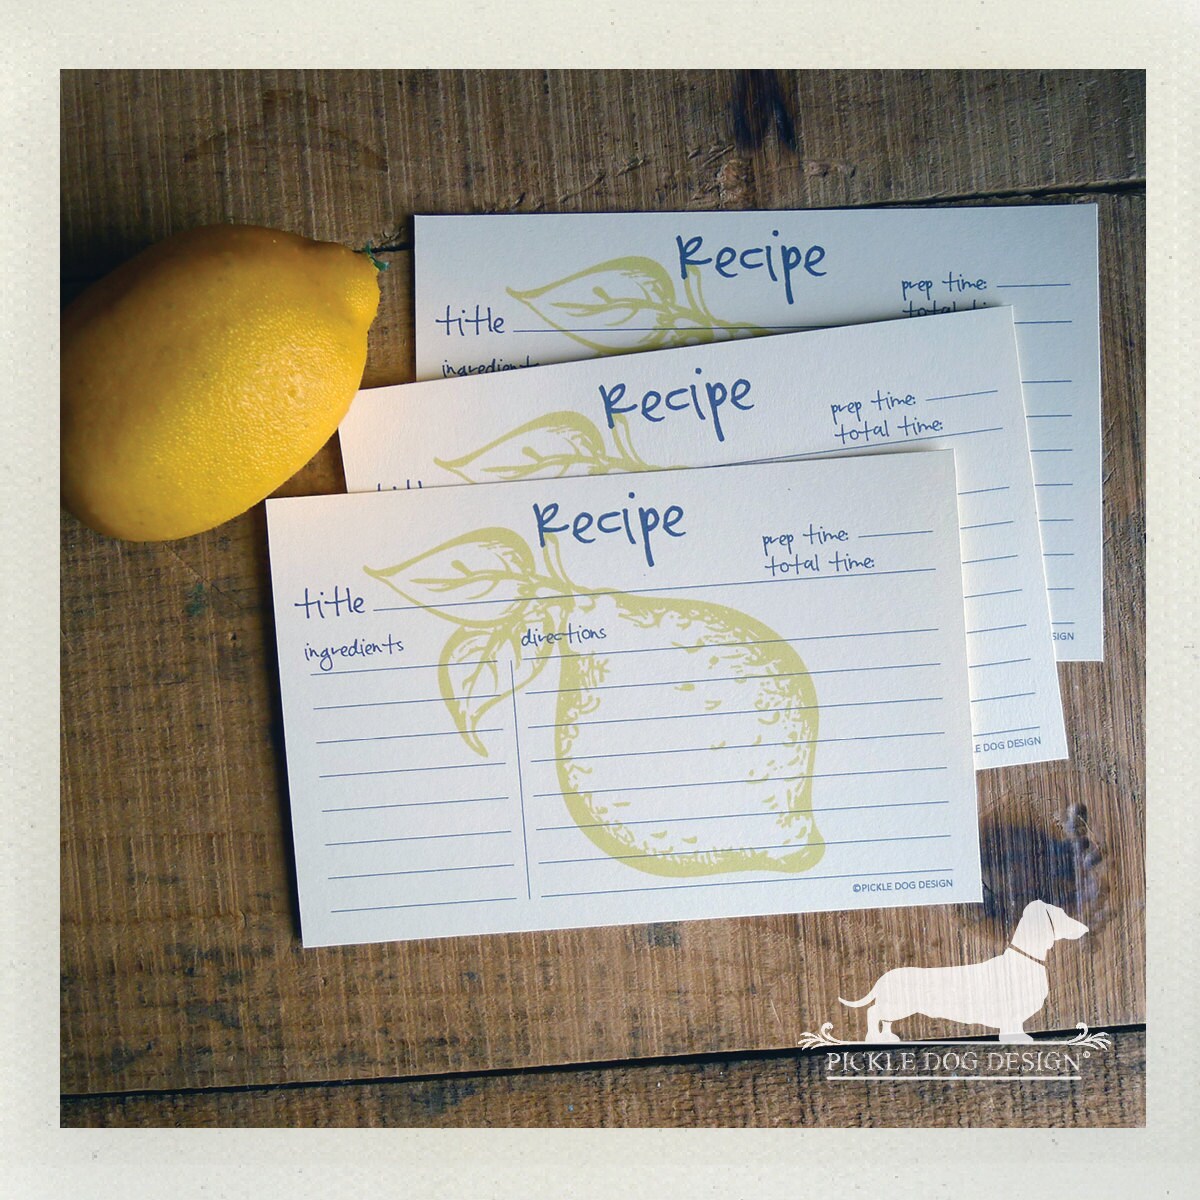 Recipe
prep time:
total ti
title
ingredients
Recipe
prep time:
total time:
title
Recipe
prep time:
total time:
title
ingredients
directions
SIGN
LE DOG DESIGN
©PICKLE DOG DESIGN
PICKLE DOG DESIGN®